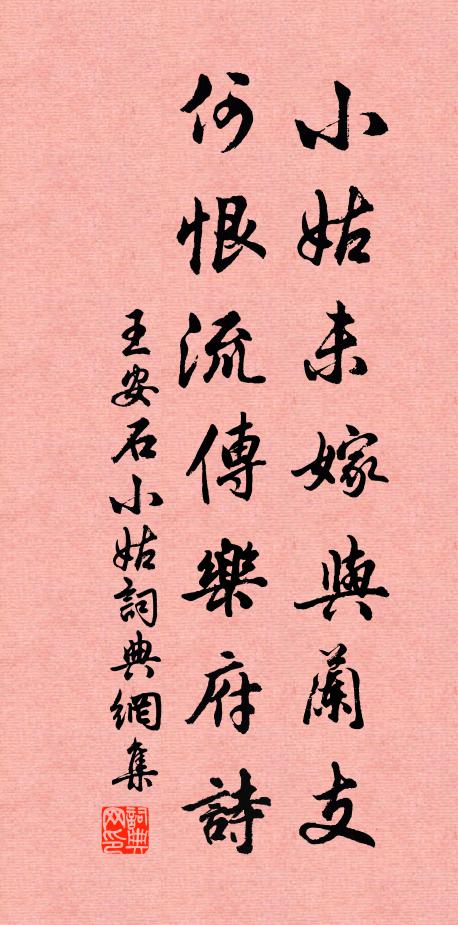 小姑未嫁與蘭支
何恨流傳樂府詩
王安石小姑詞典網集
詞典網印